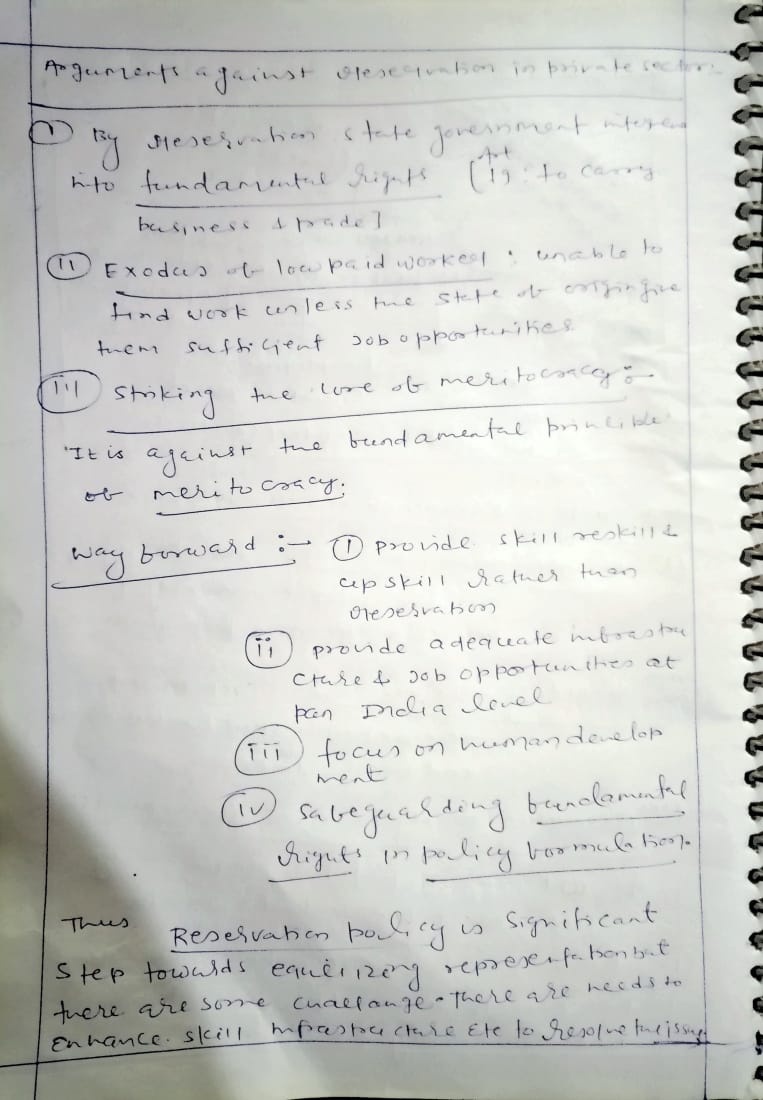 Arguments against reservation in private sector:
① By reservation state government interene
into fundamental rights [Art 19: to carry
business & trade]
ⓘⓘ Exodus of low paid worker : unable to
find work unless the state of origin give
them sufficient Job opportunities.
ⓘⓘⓘ Striking the core of meritocracy :-
'It is against the fundamental principle
of meritocracy.
Way forward :- ① provide skill reskill &
up skill rather than
reservation
ⓘⓘ provide adequate infrastru
cture & Job opportunities at
pan India level
ⓘⓘⓘ focus on human develop
ment
ⓘⓥ Safeguarding fundamental
rights in policy formulation.
Thus Reservation policy is significant
step towards equilizing representation but
there are some challange. There are needs to
Enhance skill infrastructure etc to resolve the issue